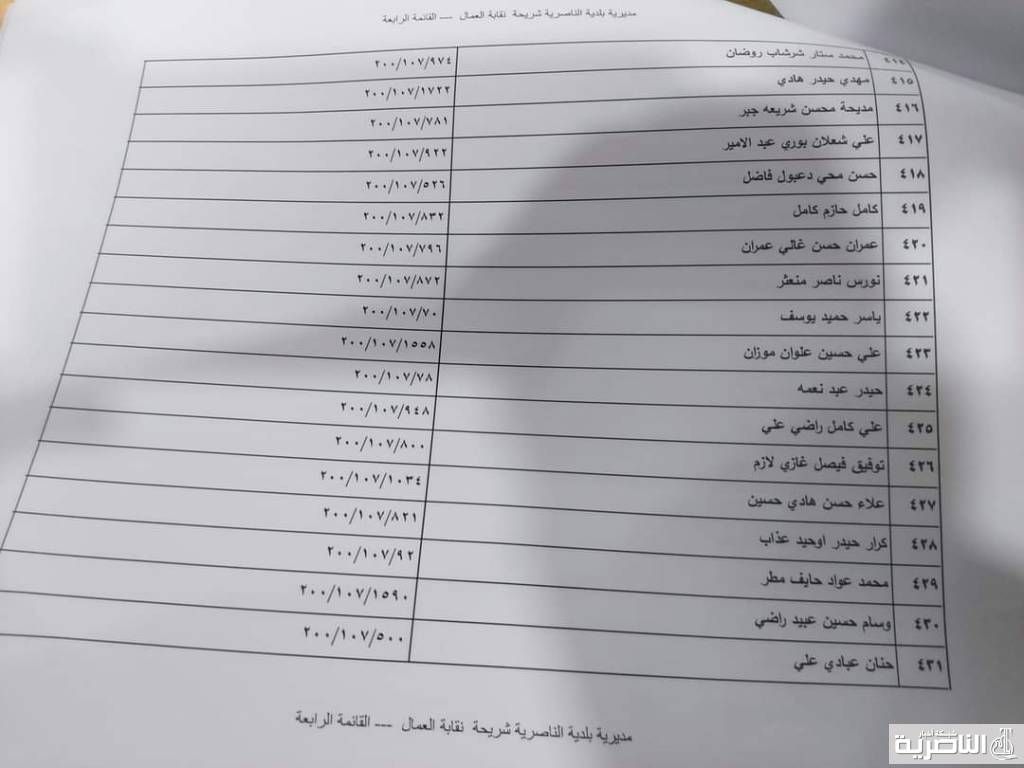 مديرية بلدية الناصرية شريحة نقابة العمال --- القائمة الرابعة
٤١٤ محمد ستار شرشاب روضان ٢٠٠/١٠٧/٩٧٤
٤١٥ مهدي حيدر هادي ٢٠٠/١٠٧/١٧٢٢
٤١٦ مديحة محسن شريعه جبر ٢٠٠/١٠٧/٧٨١
٤١٧ علي شعلان بوري عبد الامير ٢٠٠/١٠٧/٩٢٢
٤١٨ حسن محي دعبول فاضل ٢٠٠/١٠٧/٥٢٦
٤١٩ كامل حازم كامل ٢٠٠/١٠٧/٨٣٢
٤٢٠ عمران حسن غالي عمران ٢٠٠/١٠٧/٧٩٦
٤٢١ نورس ناصر منعثر ٢٠٠/١٠٧/٨٧٢
٤٢٢ ياسر حميد يوسف ٢٠٠/١٠٧/٧٠
٤٢٣ علي حسين علوان موزان ٢٠٠/١٠٧/١٥٥٨
٤٢٤ حيدر عبد نعمه ٢٠٠/١٠٧/٧٨
٤٢٥ علي كامل راضي علي ٢٠٠/١٠٧/٩٤٨
٤٢٦ توفيق فيصل غازي لازم ٢٠٠/١٠٧/٨٠٠
٤٢٧ علاء حسن هادي حسين ٢٠٠/١٠٧/١٠٣٤
٤٢٨ كرار حيدر اوحيد عذاب ٢٠٠/١٠٧/٨٢١
٤٢٩ محمد عواد حايف مطر ٢٠٠/١٠٧/٩٢
٤٣٠ وسام حسين عبيد راضي ٢٠٠/١٠٧/١٥٩٠
٤٣١ حنان عبادي علي ٢٠٠/١٠٧/٥٠٠
مديرية بلدية الناصرية شريحة نقابة العمال --- القائمة الرابعة
شبكة اخبار
الناصرية